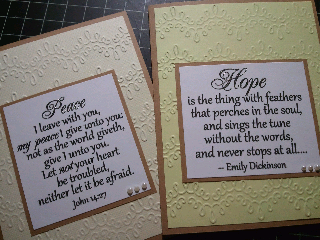 Peace
I leave with you,
my peace I give unto you:
not as the world giveth,
give I unto you.
Let not your heart
be troubled,
neither let it be afraid.
John 14:27
Hope
is the thing with feathers
that perches in the soul,
and sings the tune
without the words,
and never stops at all....
~ Emily Dickinson